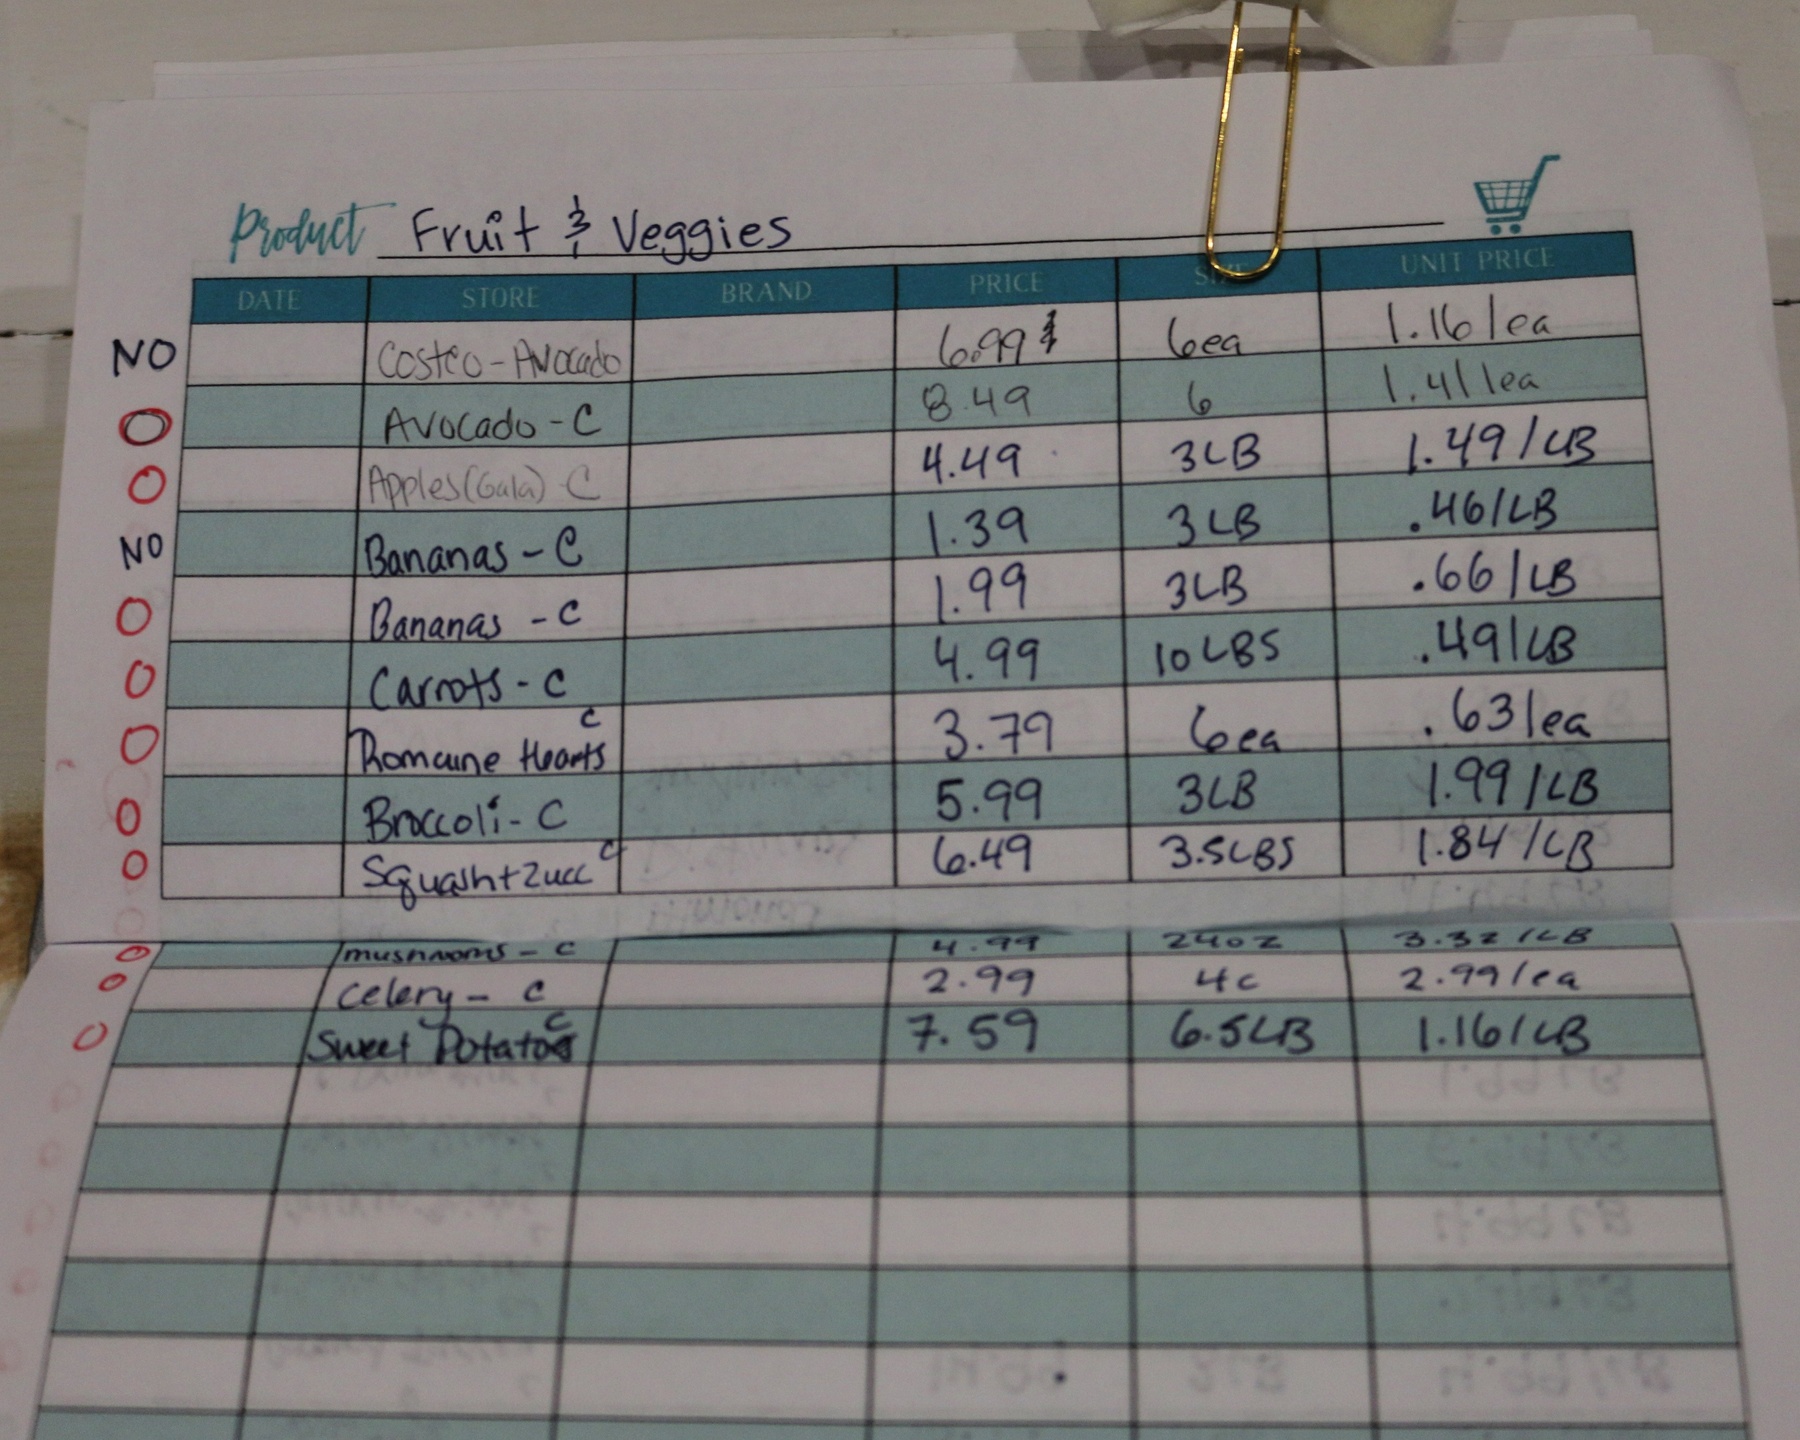 Product Fruit & Veggies
DATE STORE BRAND PRICE SIZE UNIT PRICE
NO Costco - Avocado 6.99 6ea 1.16/ea
O Avocado - C 8.49 6 1.41/ea
O Apples (Gala) - C 4.49 3LB 1.49/LB
NO Bananas - C 1.39 3LB .46/LB
O Bananas - C 1.99 3LB .66/LB
O Carrots - C 4.99 10LBS .49/LB
O Romaine Hearts C 3.79 6ea .63/ea
O Broccoli - C 5.99 3LB 1.99/LB
O Squash + Zucc C 6.49 3.5LBS 1.84/LB
O mushrooms - C 4.99 24oz 3.32/LB
O celery - C 2.99 4c 2.99/ea
O Sweet Potatoes C 7.59 6.5LB 1.16/LB